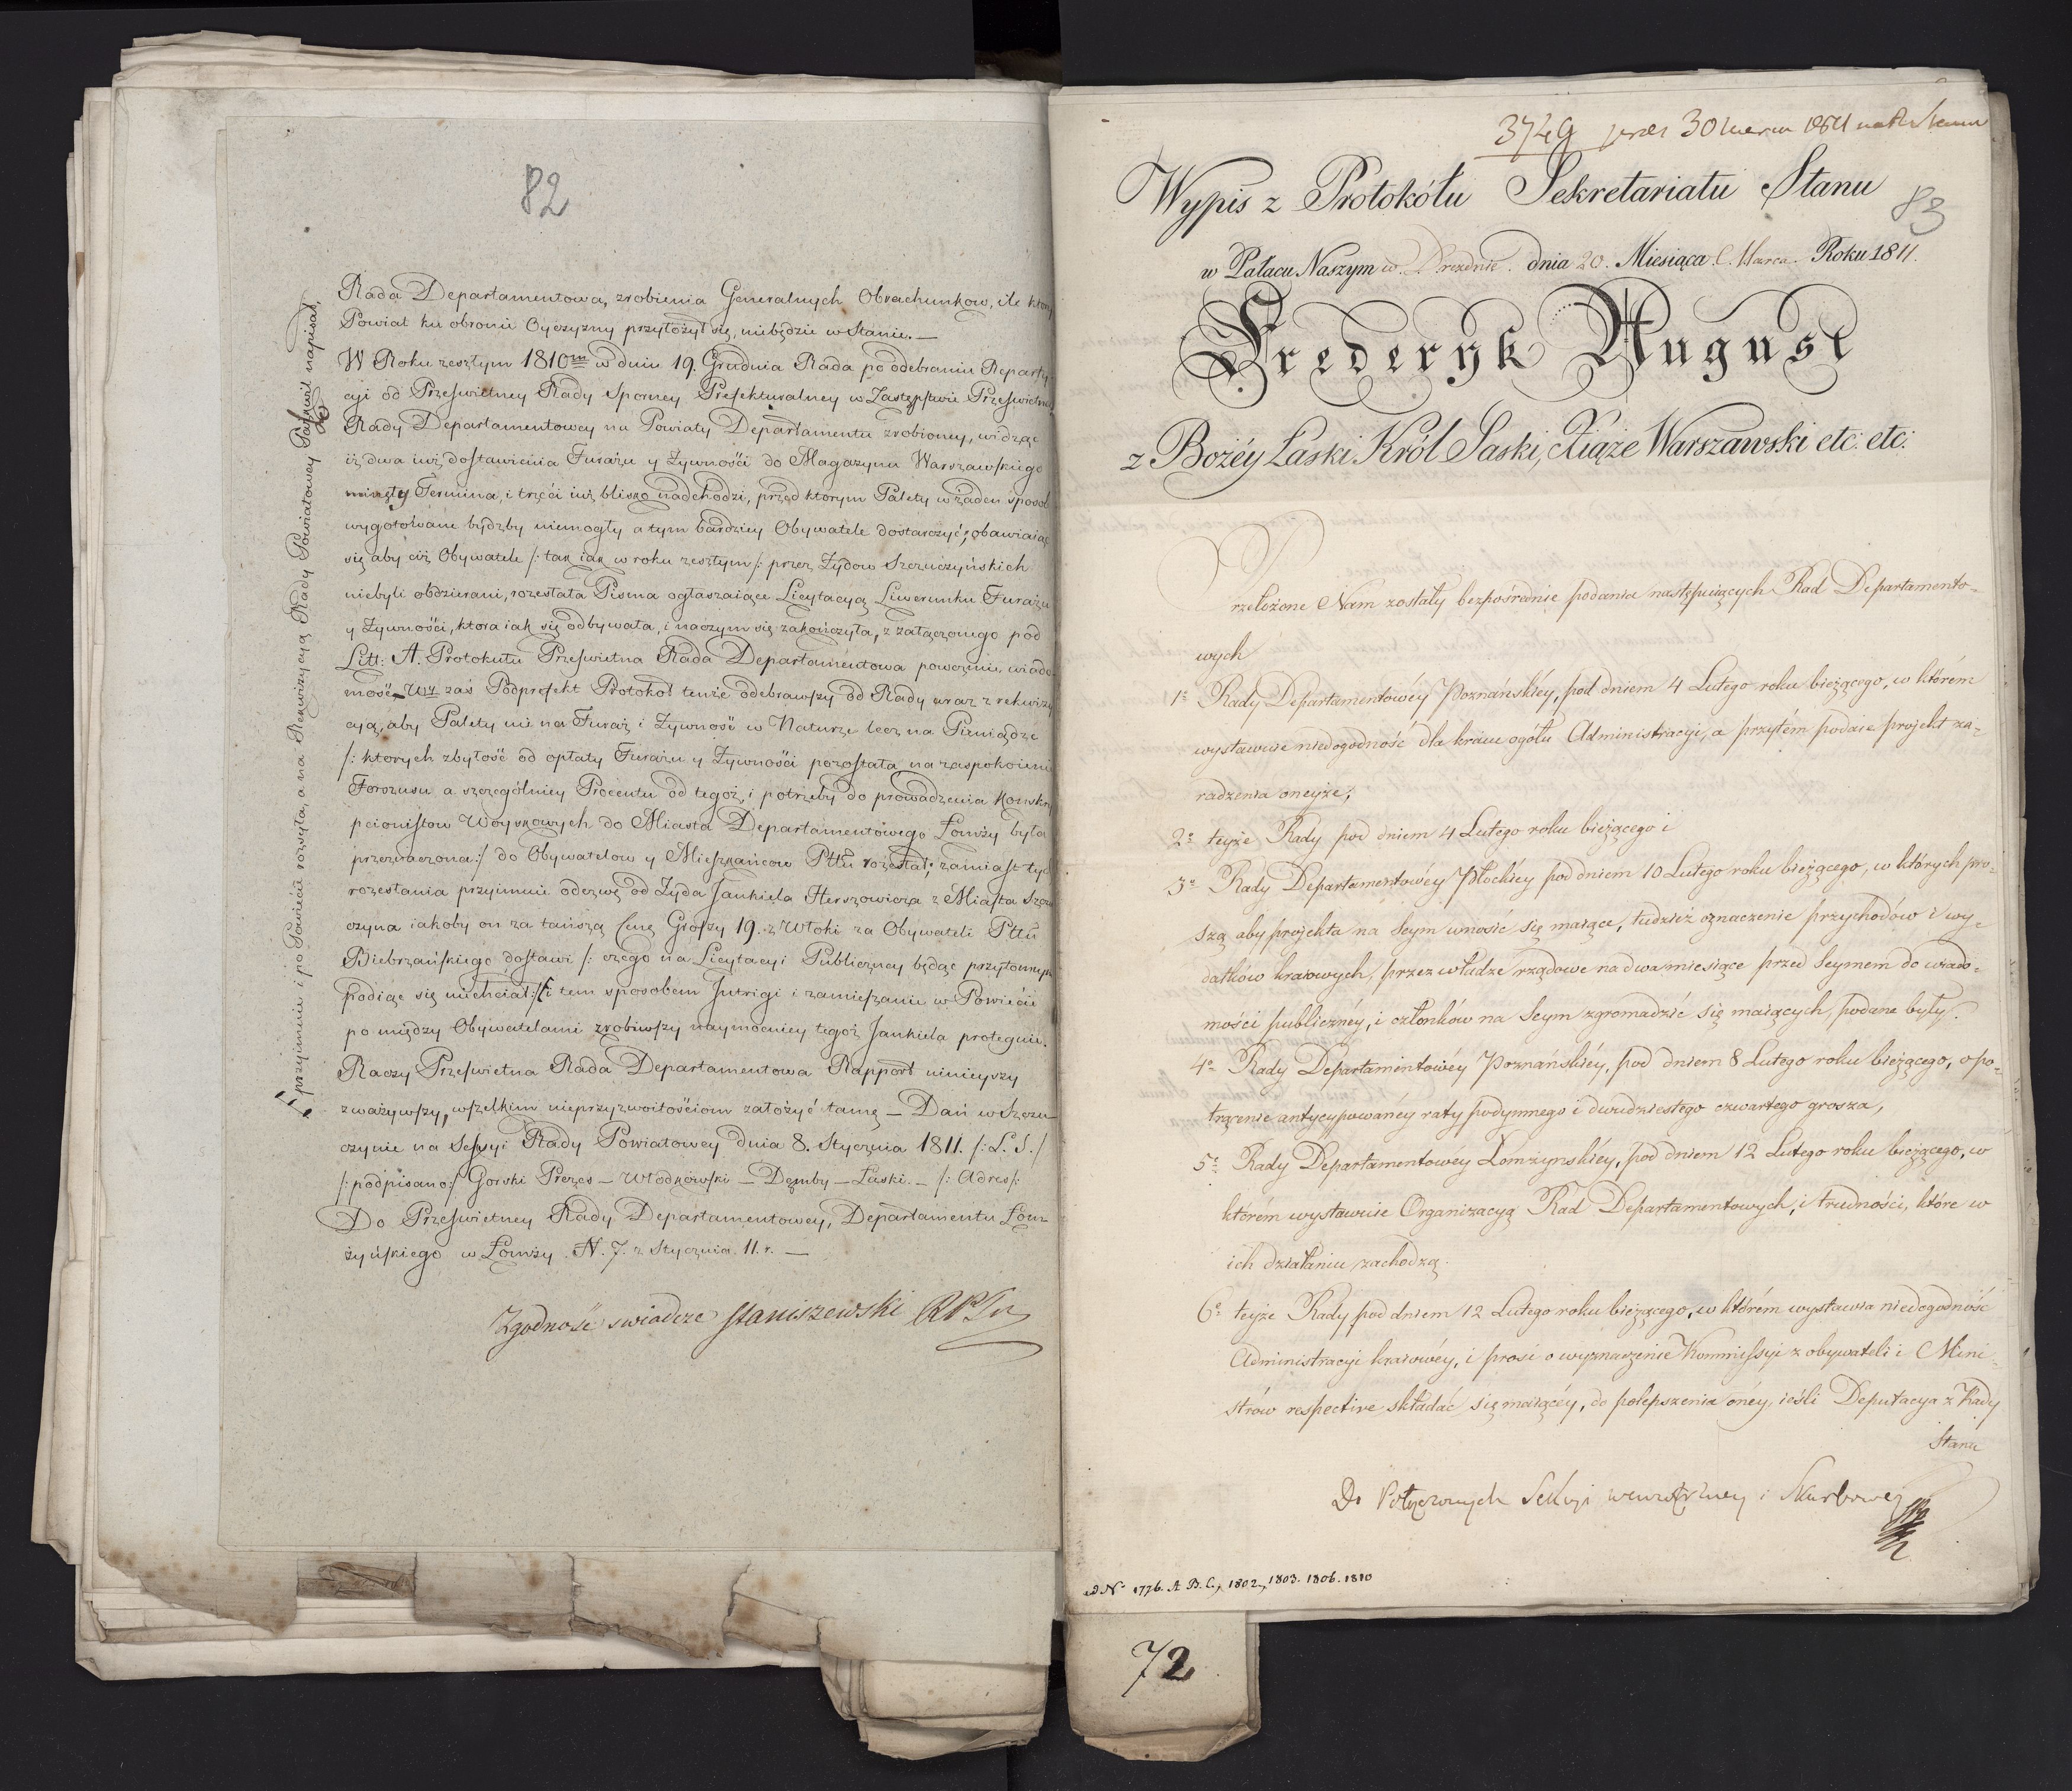 82
Rada Departamentowa, zrobienia Generalnych Obrachunkow, ile ktory
Powiat ku obronie Oyczyzny przyłożył się, niebędzie w Stanie. —
W Roku zeszłym 1810m w dniu 19. Grudnia Rada po odebraniu Reparty-
cyi od Prześwietney Rady Sporney Prefekturalney w Zastępstwie Prześwietney
Rady Departamentowey na Powiaty Departamentu zrobioney, widząc
iż dwa iuż dostawienia Furażu y Żywności do Magazynu Warszawskiego
minęły Termina, i trzeci iuż blisko nadchodzi, przed ktorym Palety w żaden sposob
wygotowane bydźby niemogły a tym bardziey Obywatele dostarczyć; obawiaiąc
się aby ciż Obywatele /: tak iak w roku zeszłym :/ przez Żydow Szczuczyńskich
niebyli obdzierani, rozesłała Pisma ogłaszaiące Licytacyą Liwerunku Furażu
y Żywności, ktora iak się odbywała, i naczym się zakończyła, z załączonego pod
Litt: A. Protokułu Prześwietna Rada Departamentowa poweźmie wiado-
mość. — zaś Podprefekt Protokoł tenże odebrawszy od Rady wraz z rekwizy-
cyą, aby Palety nie na Furaż i Żywność w Naturze lecz na Pieniądze
/: ktorych zbyłość od opłaty Furażu y Żywności pozostała na zaspokoienie
Forszusu a szczególniey Procentu od tegoż, i potrzeby do prowadzenia Konskry-
pcionistow Woyskowych do Miasta Departamentowego Łomży była
przeznaczona :/ do Obywatelow y Mieszkańcow Pttu rozesłał; zamiast tych
rozesłania przyimuie odezwę od Żyda Jankiela Herszowicza z Miasta Szczu-
czyna iakoby on za tańszą Cenę Groszy 19. z Włoki za Obywateli Pttu
Biebrzańskiego dostawi /: czego na Licytacyi Publiczney będąc przytomnym
podiąc się niechciał :/ i tem sposobem Intrigi i zamieszanie w Powiecie
po między Obywatelami zrobiwszy naymocniey tegoż Jankiela proteguie.
Raczy Prześwietna Rada Departamentowa Rapport ninieyszy
zważywszy, wszelkim nieprzyzwoitościom założyć tamę — Dań w Szczu-
czynie na Sessyi Rady Powiatowey dnia 8. Stycznia 1811. /: L. S. :/
/: podpisano :/ Gorski Prezes — Włodkowski — Dęmby — Łaski. — /: Adres :/
Do Prześwietney Rady Departamentowey, Departamentu Łom-
żyńskiego w Łomży. N. 7. z Stycznia. 11. r. —
Zgodność swiadcze Staniszewski
przyimuie i po Powiecie rozsyła, a na Rekwizycyą Rady Powiatowey napisał,
3749
83
Wypis z Protokółu Sekretariatu Stanu
w Pałacu Naszym w Dreznie. dnia 20. Miesiąca Marca. Roku 1811.
Fryderyk August
z Bożéy Łaski Król Saski, Xiąże Warszawski etc: etc:
Przełożone Nam zostały bezpośrednie podania następuiących Rad Departamento-
wych
1e Rady Departamentowéy Poznańskiéy, pod dniem 4 Lutego roku bieżącego, w którém
wystawuie niedogodność dla kraiu ogółu Administracyi, a przytém podaie projekt za-
radzenia oneyże,
2e teyże Rady pod dniem 4 Lutego roku bieżącego i
3e Rady Departamentowéy Płockiey pod dniem 10 Lutego roku bieżącego, w których pro-
szą aby projekta na Seym wnosić się maiące, tudzież oznaczenie przychodów i wy-
datków kraiowych, przez władze rządowe na dwa miesiące przed Seymem do wiado-
mości publicznéy, i członków na Seym zgromadzić się maiących, podane były.
4e Rady Departamentowéy Poznańskiéy, pod dniem 8 Lutego roku bieżącego, o po-
trącenie antycypowanéy raty podymnego i dwudziestego czwartego grosza,
5e Rady Departamentowéy Łomżynskiéy, pod dniem 12 Lutego roku bieżącego, w
którém wystawuie Organizacyą Rad Departamentowych, i trudności, które w
ich działaniu zachodzą.
6e teyże Rady pod dniem 12 Lutego roku bieżącego, w którém wystawia niedogodność
Administracyi kraiowéy, i prosi o wyznaczenie Kommissyi z obywateli i Mini-
strów respective składać się maiącéy, do polepszenia onéy, ieśli Deputacya z Rady
Stanu
Do Połączonych Sekcyi wewnętrzney i Skarbowey
ad No 1776. A B. C., 1802, 1803. 1806. 1810
72